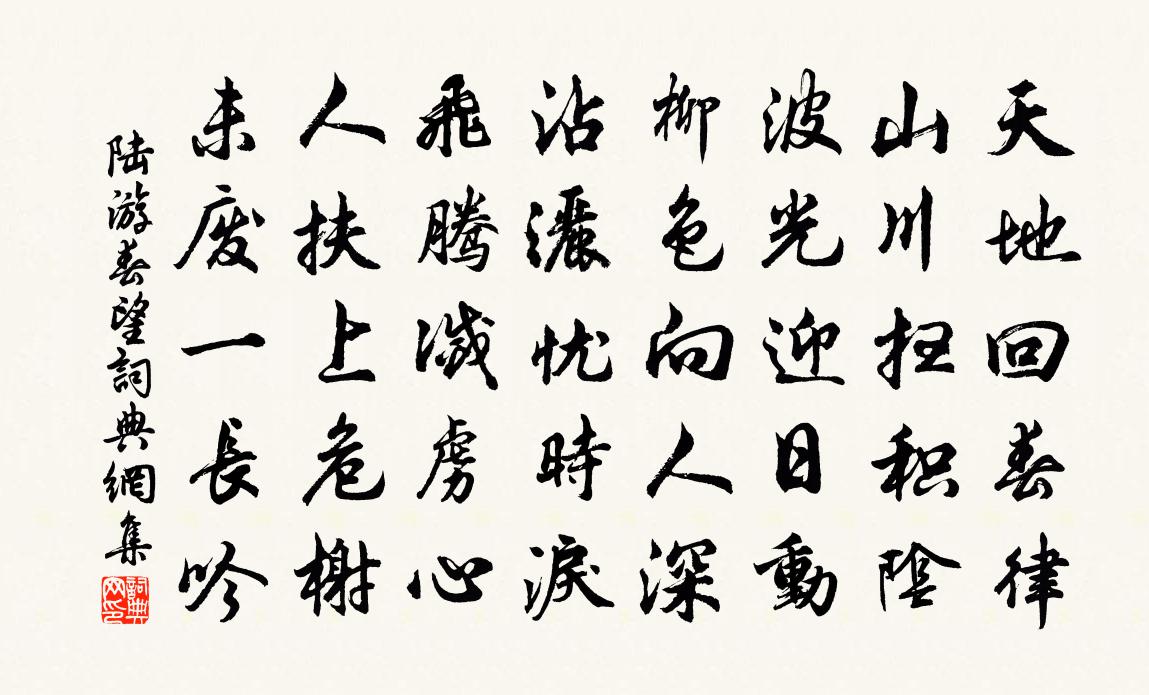 天地回春律
山川扫积陰
波光迎日動
柳色向人深
沾灑忧時淚
飛騰滅虏心
人扶上危榭
未废一長吟
陆游春望詞典網集
詞典網印